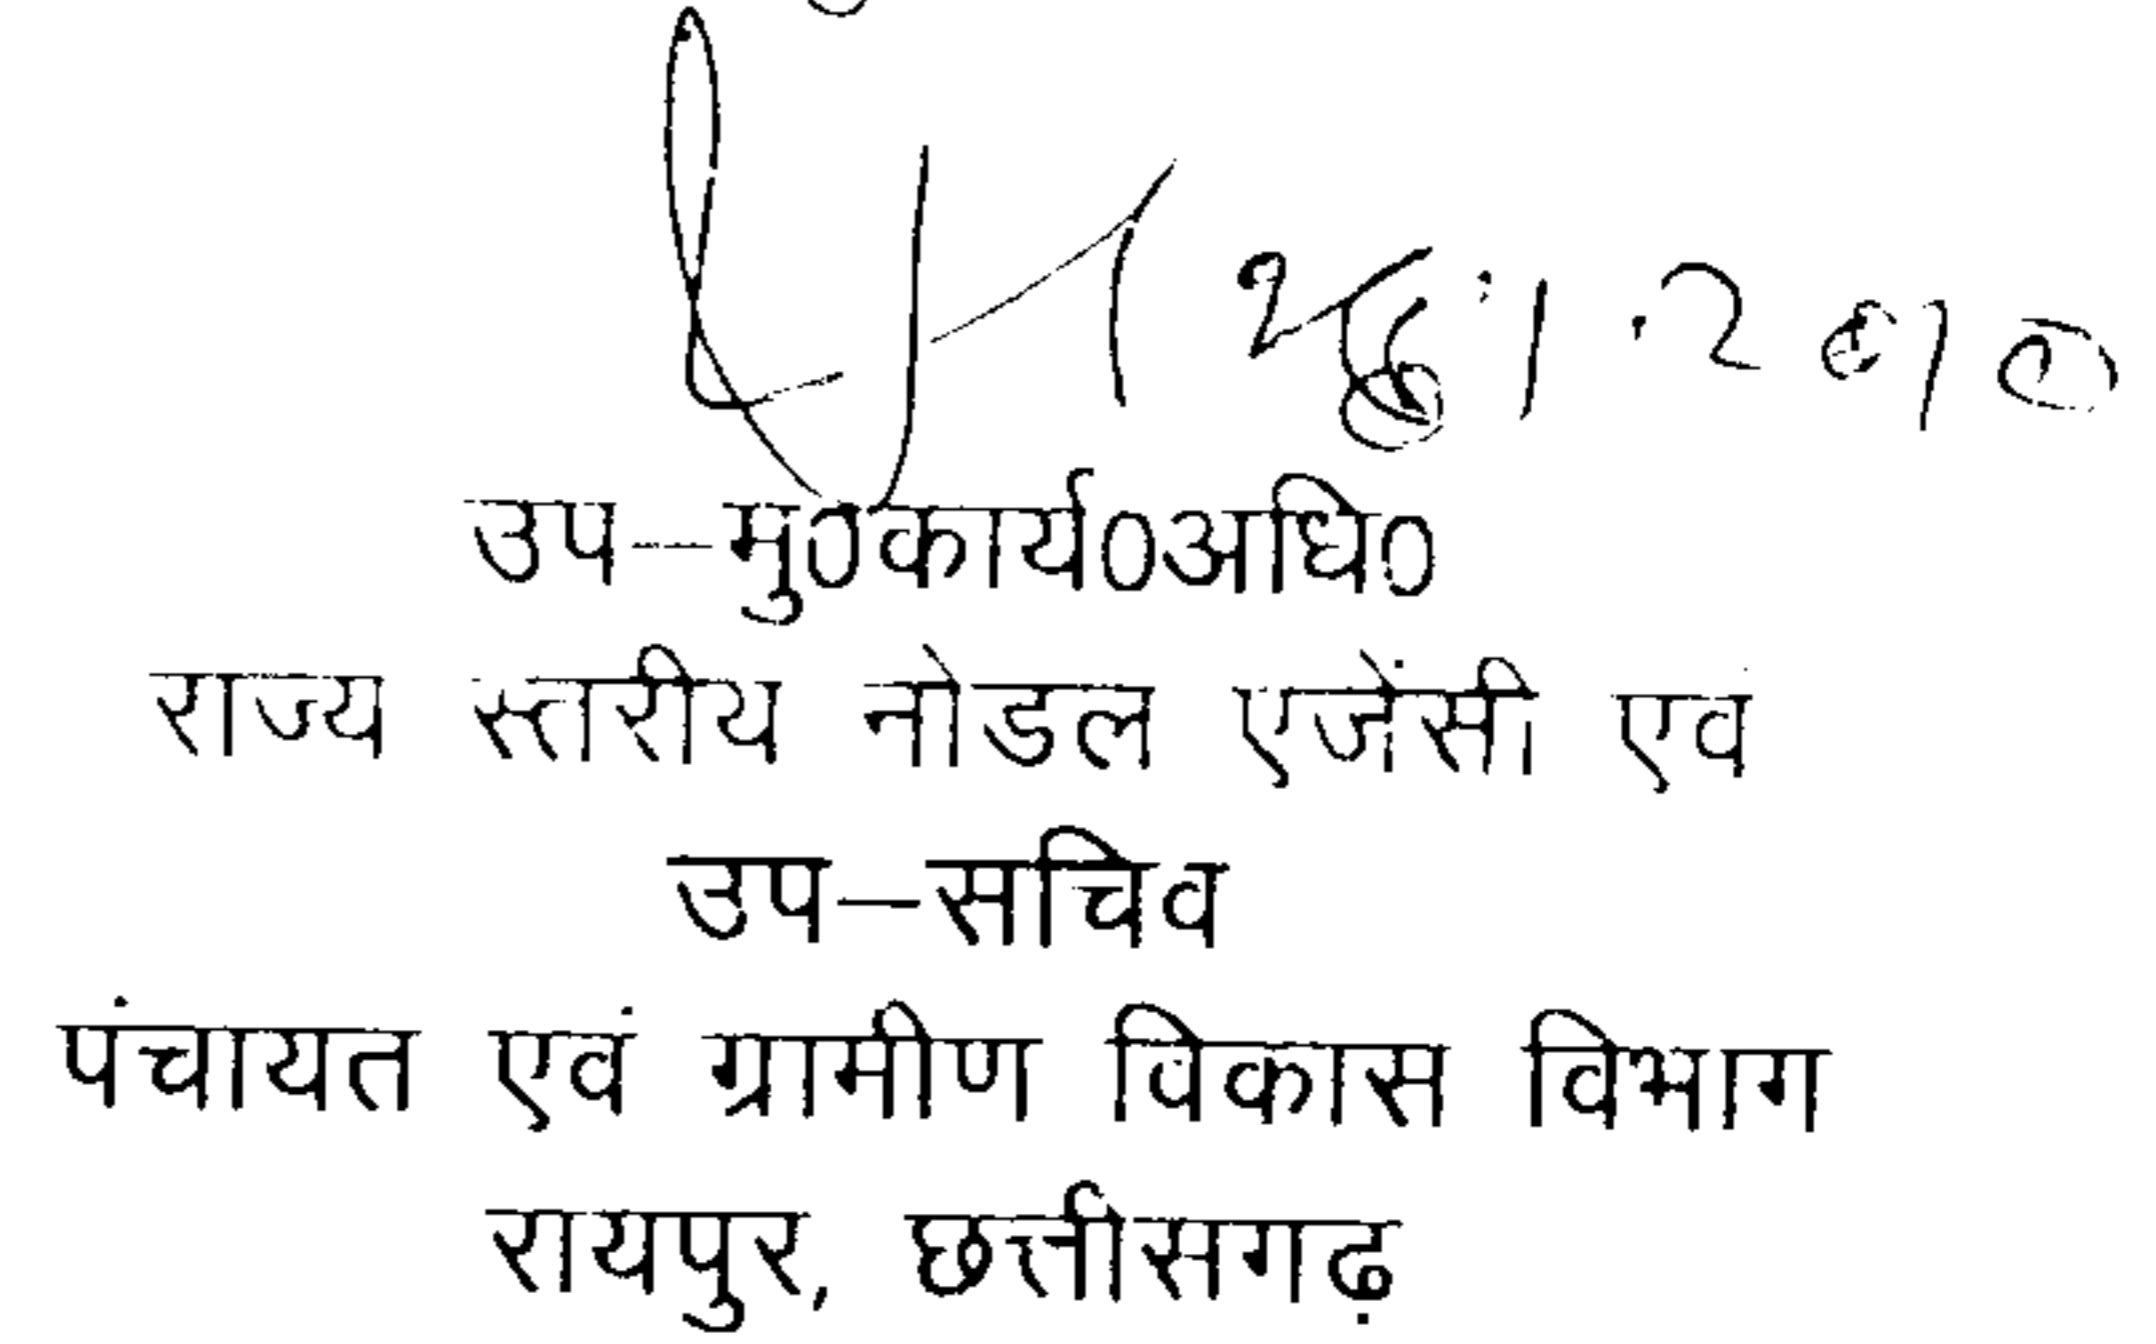 उप–मु0कार्य0अधि0
राज्य स्तरीय नोडल एजेंसी एवं
उप–सचिव
पंचायत एवं ग्रामीण विकास विभाग
रायपुर, छत्तीसगढ़